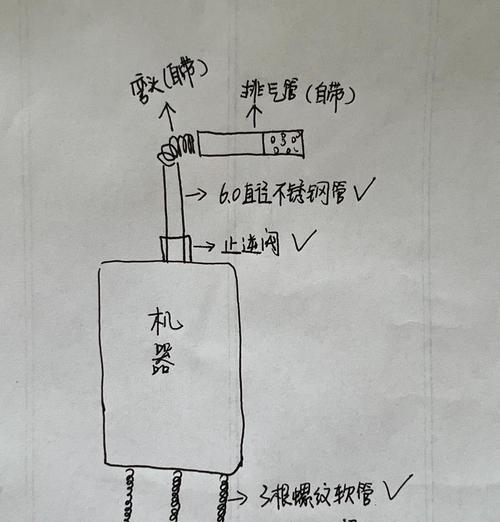 弯头(自带)
排气管(自带)
6.0直径不锈钢管 ✓
止逆阀 ✓
机
器
3根螺纹软管 ✓